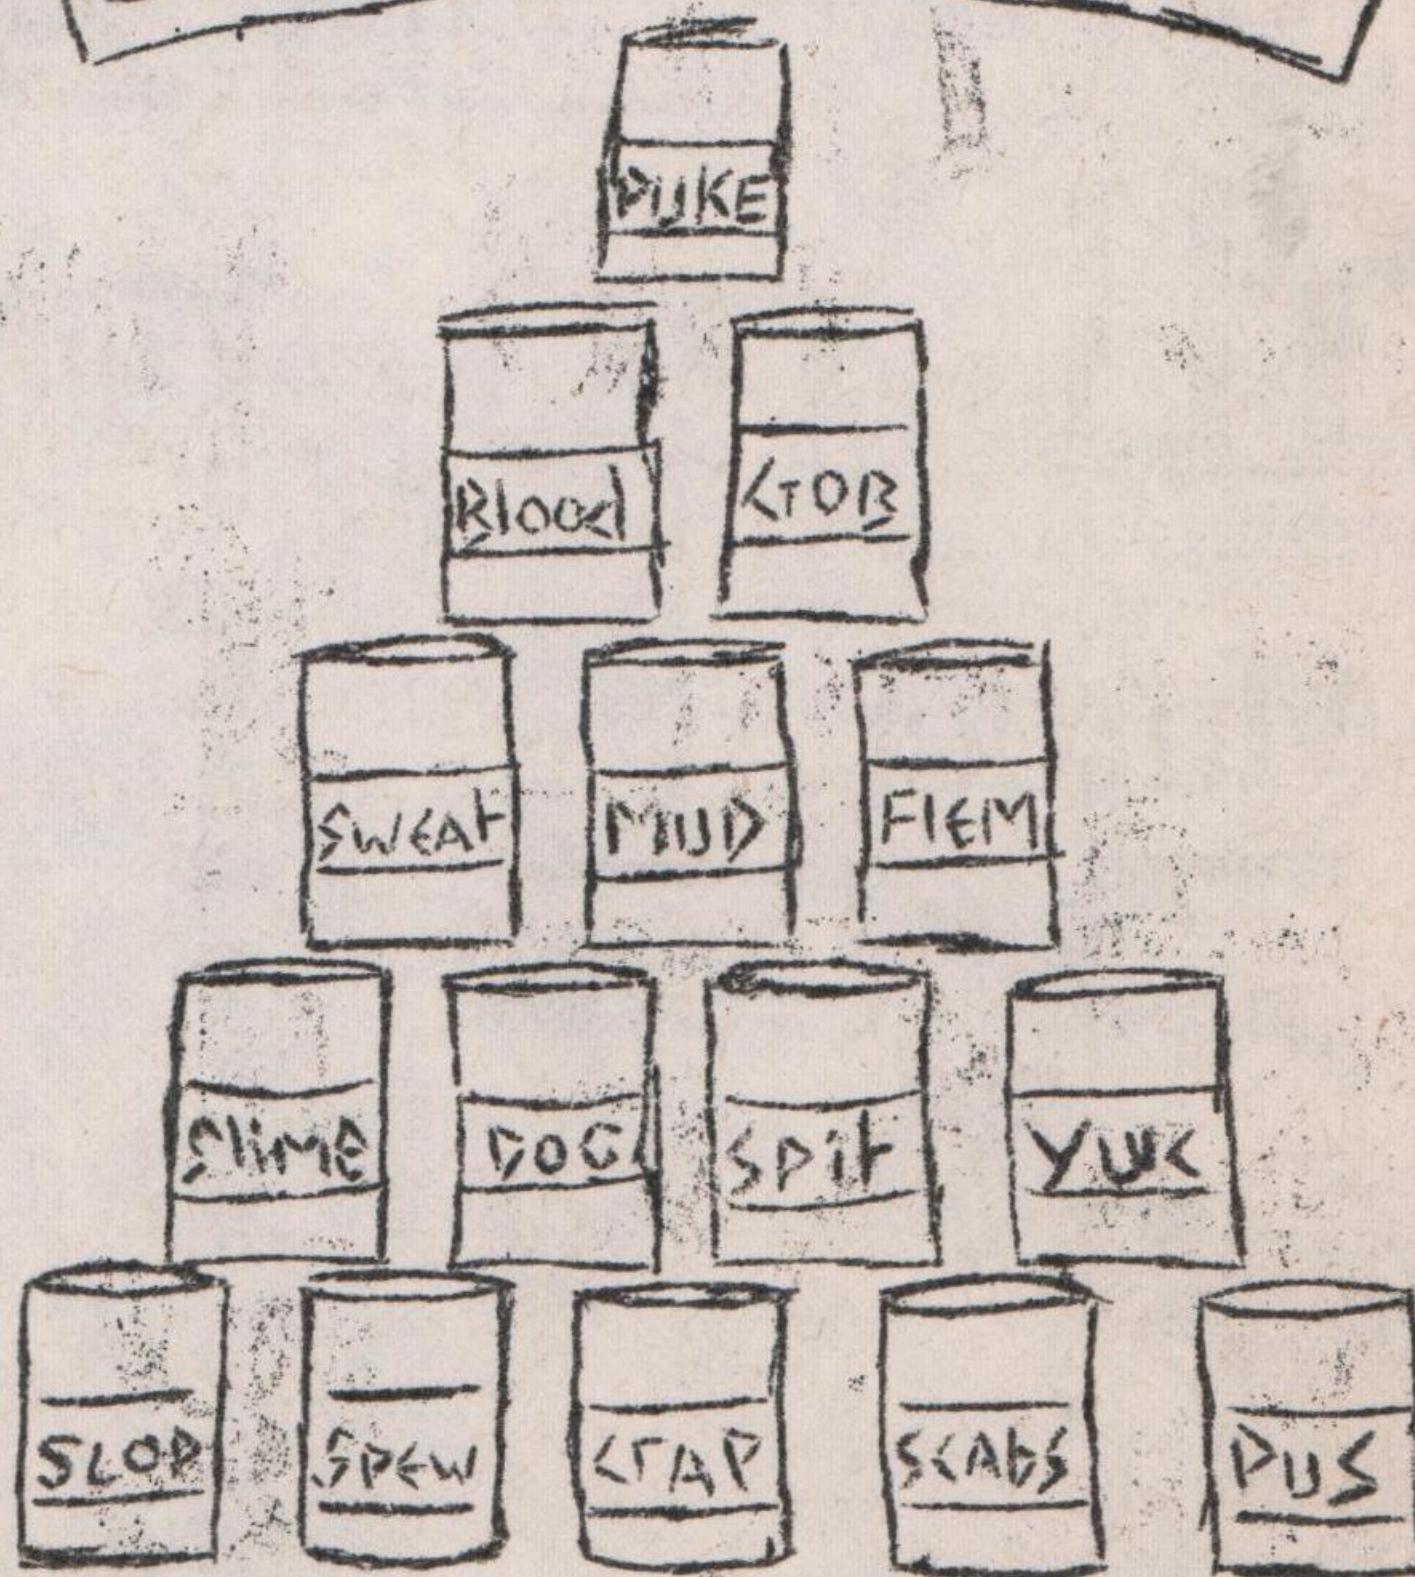 PUKE
Blood CrOB
SWEAt MUD FIEM
SliME DOG Spit YUK
SLOP SPEW CrAP SCAbS PUS